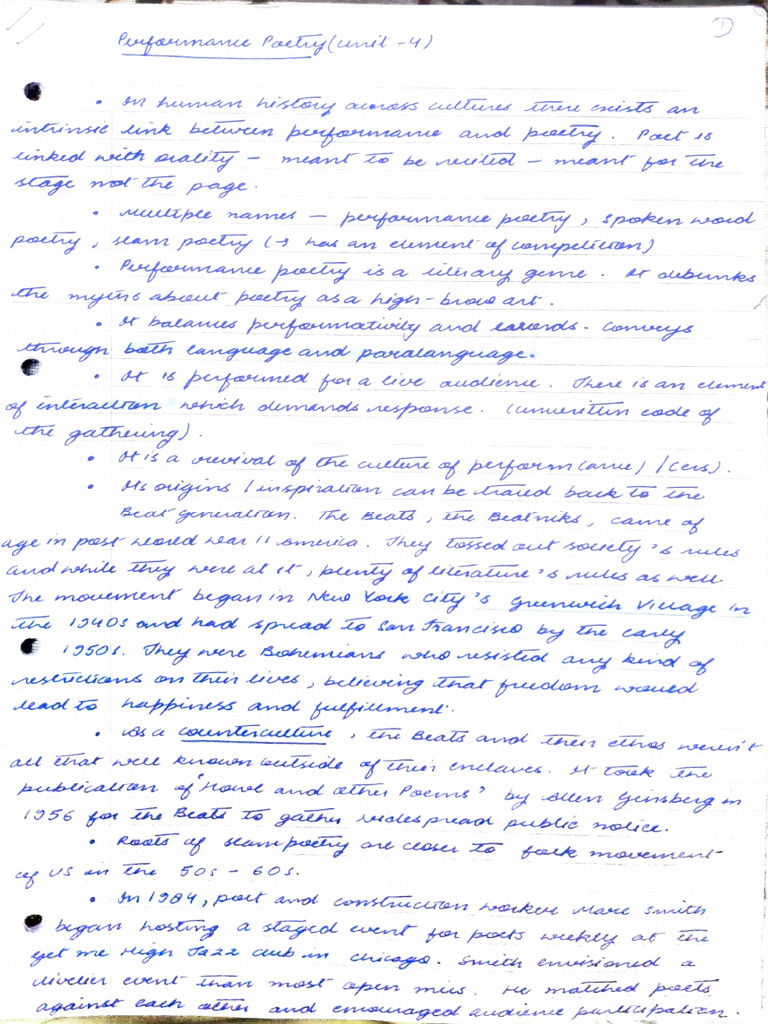 1
Performance Poetry (unit - 4)
• In human history across cultures there exists an
intrinsic link between performance and poetry. Poet is
linked with orality – meant to be recited – meant for the
stage not the page.
• Multiple names – performance poetry, spoken word
poetry, slam poetry (→ has an element of competition)
• Performance poetry is a literary genre. It debunks
the myths about poetry as a high-brow art.
• It balances performativity and words. Conveys
through both language and paralanguage.
• It is performed for a live audience. There is an element
of interaction which demands response. (unwritten code of
the gathering).
• It is a revival of the culture of perform(ance) / (ers).
• Its origins / inspiration can be traced back to the
Beat generation. The Beats, the Beatniks, came of
age in post world war II America. They tossed out society's rules
and while they were at it, plenty of literature's rules as well
The movement began in New York City's Greenwich Village in
the 1940s and had spread to San Francisco by the early
1950s. They were Bohemians who resisted any kind of
restrictions on their lives, believing that freedom would
lead to happiness and fulfillment.
• As a counterculture, the Beats and their ethos weren't
all that well known outside of their enclaves. It took the
publication of 'Howl and other Poems' by Allen Ginsberg in
1956 for the Beats to gather widespread public notice.
• Roots of slam poetry are closer to folk movement
of US in the 50s – 60s.
• In 1984, poet and construction worker Marc Smith
began hosting a staged event for poets weekly at the
Get Me High Jazz club in Chicago. Smith envisioned a
livelier event than most open mics. He matched poets
against each other and encouraged audience participation.